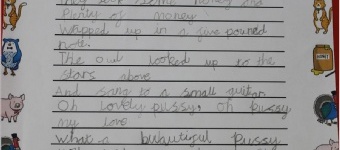 They took some honey and
Plenty of money
Wrapped up in a five pouned
note.
The owl looked up to the
stars above
And sang to a small guitar
Oh lovely pussy, oh pussy
my love
What a buautiful Pussy